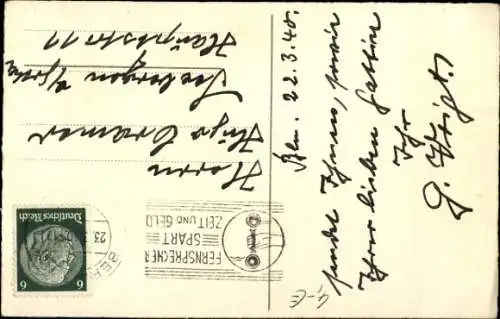 Bln. 22.3.40.
sendet Ihnen, sowie
Ihrer lieben Gattin
Ihr
G. Voigt.
Herrn
Hugo Cramer
Hauptstr 11
FERNSPRECHER
SPART
ZEIT UND GELD
BER
23.
Deutsches Reich
6 6
4,- €